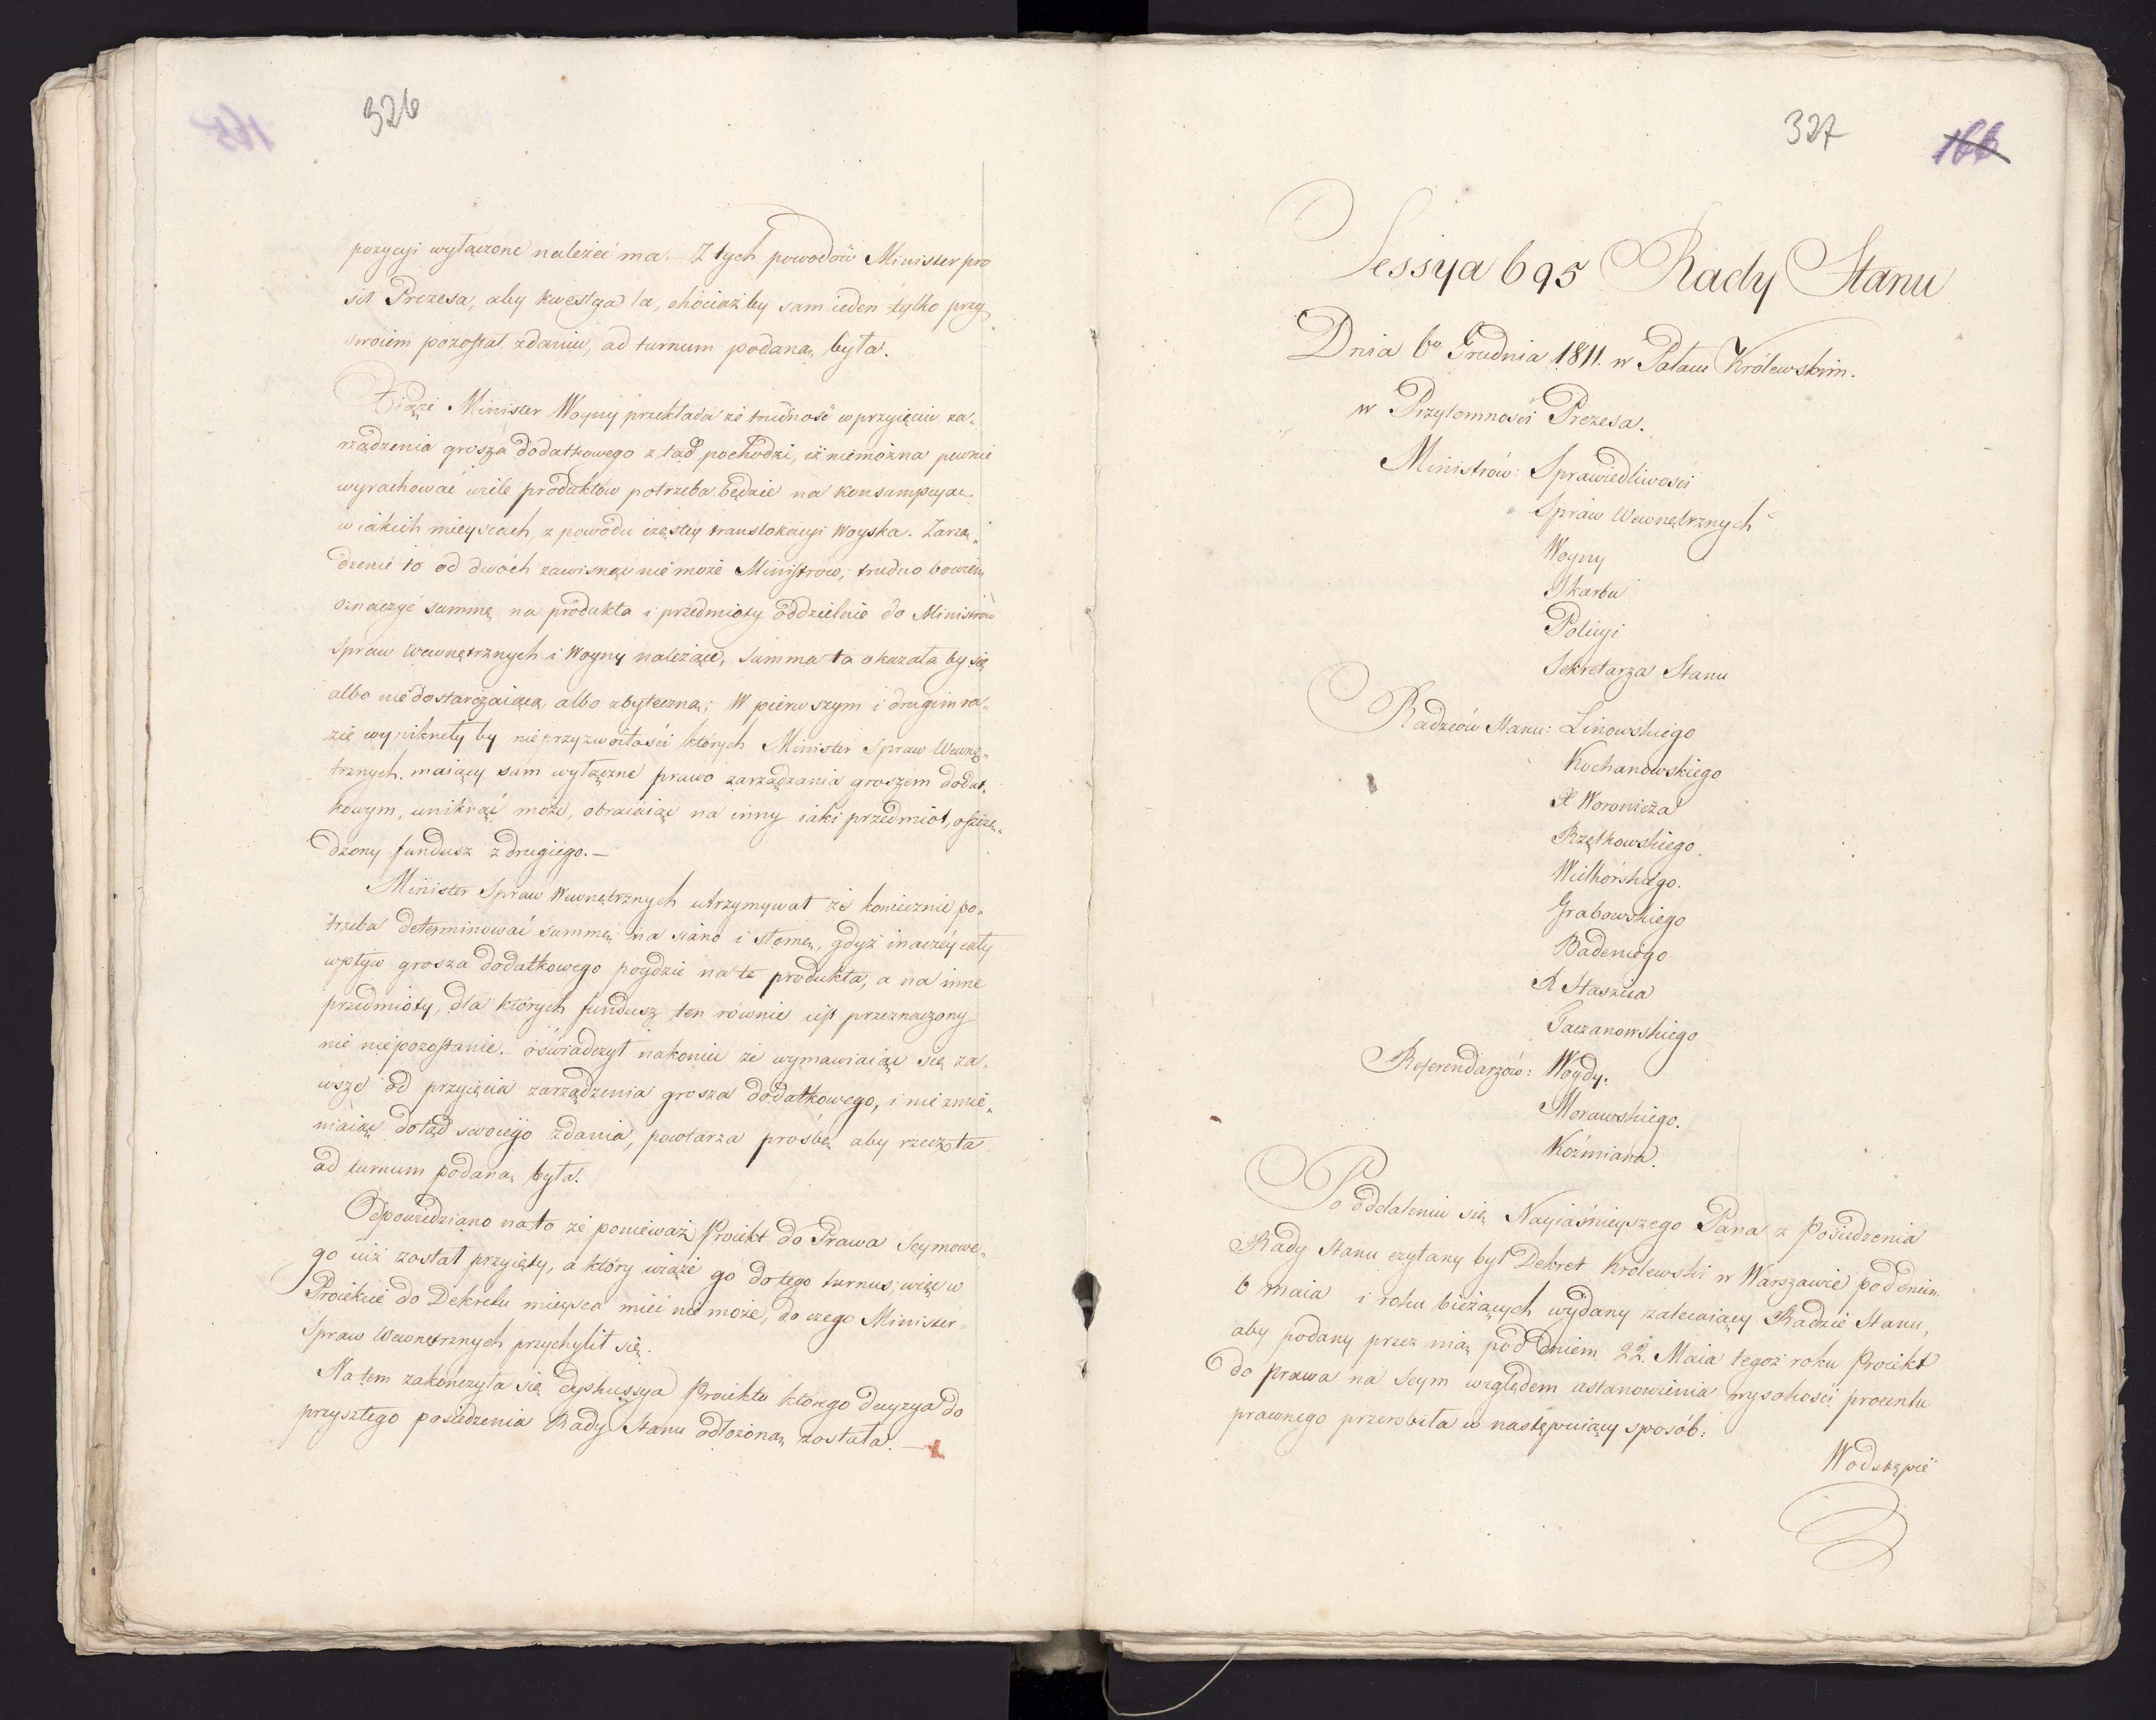 326
pozycyi wyłączone należeć ma. – Z tych powodów Minister pro
sił Prezesa, aby kwestya ta, chociażby sam ieden tylko przy
swoiem pozostał zdaniu, ad turnum podaną była.
Xiąże Minister Woyny przekładał że trudność w przyięciu za„
rządzenia grosza dodatkowego z tąd pochodzi, iż niemożna pewnie
wyrachować wiele produktów potrzeba będzie na konsumpcyą
w iakich mieyscach, z powodu częstey translokacyi Woyska. Zarzą„
dzenie to od dwóch zawisnąć nie może Ministrow, trudno bowiem
oznaczyć summę na produkta i przedmioty oddzielnie do Ministrów
Spraw Wewnętrznych i Woyny należące, summa ta okazała by się
albo niedostarczaiącą albo zbyteczną; W pierwszym i drugim ra„
zie wyniknęły by nieprzyzwoitości których Minister Spraw Wewnę„
trznych maiący sam wyłączne prawo zarządzania groszem dodat„
kowym, uniknąć może, obracaiąc na inny iaki przedmiot, oszczę„
dzony fundusz z drugiego. –
Minister Spraw Wewnętrznych utrzymywał że koniecznie po„
trzeba determinować summę na siano i słomę, gdyż inaczey cały
wpływ grosza dodatkowego poydzie na te produkta, a na inne
przedmioty, dla których fundusz ten równie iest przeznaczony
nie niepozostanie. oświadczył nakoniec że wymawiaiąc się za„
wsze od przyięcia zarządzenia grosza dodatkowego, i nie zmie„
niaiąc dotąd swoiego zdania, powtarza prośbę aby rzecz ta
ad turnum podaną była.
Odpowiedziano na to że ponieważ Proiekt do Prawa Seymowe„
go iuż został przyięty, a który wiąże go do tego turnus; więc w
Proiekcie do Dekretu mieysca mieć nie może, do czego Minister
Spraw Wewnętrznych przychylił się.
Na tem zakończyła się dyskussya Proiektu którego decyzya do
przyszłego posiedzenia Rady Stanu odłożoną została. –
327
166
Sessya 695 Rady Stanu
Dnia 6go Grudnia 1811. w Pałacu Królewskim.
w Przytomności Prezesa.
Ministrów: Sprawiedliwości
Spraw Wewnętrznych
Woyny
Skarbu
Policyi
Sekretarza Stanu
Radzców Stanu: Linowskiego
Kochanowskiego
X Woronicza
Rzętkowskiego
Wielhórskiego.
Grabowskiego
Badeniego
X Staszica
Taczanowskiego
Referendarzów: Woydy.
Morawskiego.
Koźmiana.
Po oddaleniu się Nayiaśnieyszego Pana z Posiedzenia
Rady Stanu czytany był Dekret Krolewski w Warszawie pod dniem
6 maia i roku bieżących wydany zalecaiący Radzie Stanu,
aby podany przez nią pod dniem 22. Maia tegoż roku Proiekt
do prawa na Seym względem ustanowienia wysokości procentu
prawnego przerobiła w następuiący sposób:
W odstępie